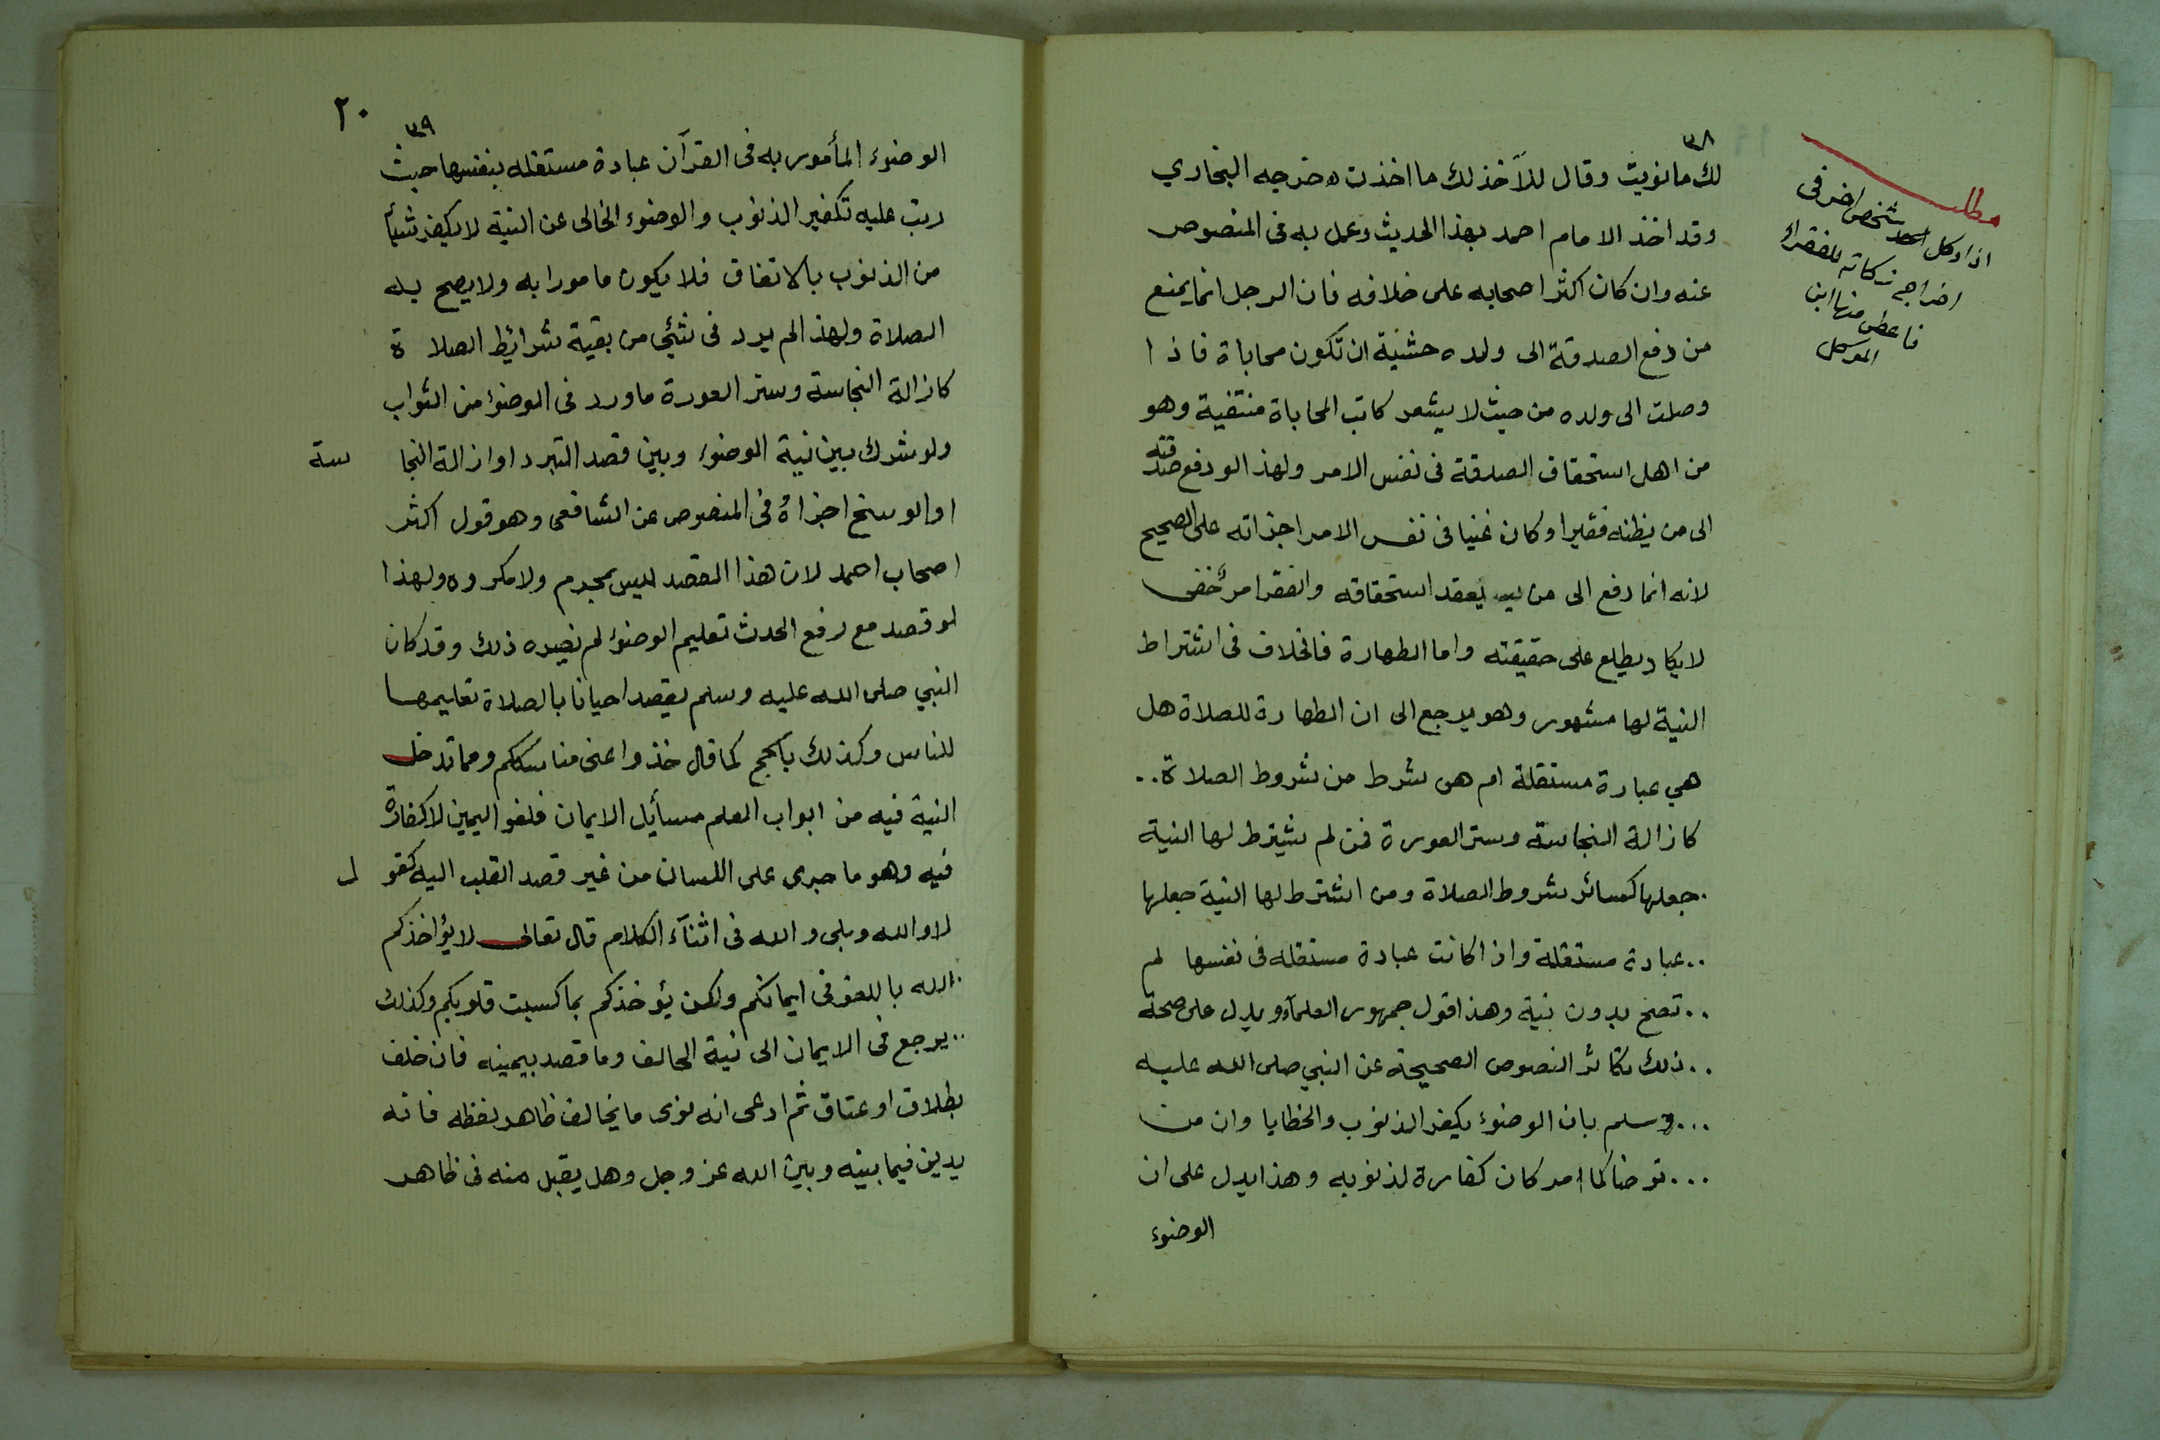 ٣٨
لك ما نويت وقال للآخذ لك ما اخذت ه خرجه البخاري
وقد اخذ الامام احمد بهذا الحديث وعمل به فى المنصوص
عنه وان كان اكثر اصحابه على خلافه فان الرجل انما يمنع
من دفع الصدقة الى ولده خشية ان تكون محاباة فاذا
وصلت الى ولده من حيث لا يشعر كانت المحاباة منتفية وهو
من اهل استحقاق الصدقة فى نفس الامر ولهذا لو دفع صدقته
الى من يظنه فقيرا وكان غنيا فى نفس الامر اجزاته على الصحيح
لانه انما دفع الى من يعقد استحقاقه والفقر امر خفى
لا يكاد يطلع على حقيقته واما الطهارة فالخلاف فى اشتراط
النية لها مشهور وهو يرجع الى ان الطهارة للصلاة هل
هي عبادة مستقلة ام هى شرط من شروط الصلاة..
كازالة النجاسة وستر العورة فمن لم يشترط لها النية
جعلها كسائر شروط الصلاة ومن اشترط لها النية جعلها
..عبادة مستقلة واذا كانت عبادة مستقله فى نفسها لم
..تصح بدون نية وهذا قول جمهور العلمآء ويدل على صحة
..ذلك تكاثر النصوص الصحيحة عن النبي صلى الله عليه
...وسلم بان الوضوء يكفر الذنوب والخطايا وان من
...توضا كما امر كان كفارة لذنوبه وهذا يدل على ان
الوضوء
مطلب
اذا وكل شخص اخر فى
اخراج زكاته للفقراء
فاعطى منها ابن
الموكل
٢٠
٣٩
الوضوء المأمور به فى القرآن عبادة مستقله بنفسها حيث
رتب عليه تكفير الذنوب والوضوء الخالى عن النية لا يكفر شيأ
من الذنوب بالاتفاق فلا يكون مامورا به ولا يصح به
الصلاة ولهذا لم يرد فى شئي من بقية شرائط الصلاة
كازالة النجاسة وستر العورة ما ورد فى الوضوء من الثواب
ولو شرك بين نية الوضوء وبين قصد التبرد او ازالة النجاسة
او الوسخ اجزاهُ فى المنصوص عن الشافعى وهو قول اكثر
اصحاب احمد لان هذا القصد ليس بمحرم ولا مكروه ولهذا
لو قصد مع رفع الحدث تعليم الوضوء لم يضره ذلك وقد كان
النبي صلى الله عليه وسلم يقصد احيانا بالصلاة تعليمها
للناس وكذلك بالحج كما قال خذوا عنى مناسككم ومما تدخل
النية فيه من ابواب العلم مسأيل الايمان فلغو اليمين لا كفارة
فيه وهو ما جرى على اللسان من غير قصد القلب اليه كقول
لا والله وبلى والله فى اثنآء الكلام قال تعالى لا يؤاخذكم
الله باللغو فى ايمانكم ولكن يؤخذكم بما كسبت قلوبكم وكذلك
..يرجع فى الايمان الى نية الحالف وما قصد بيمينه فان خلف
بطلاق او عتاق ثم ادعى انه نوى ما يخالف ظاهر لفظه فانه
يدين فيما بينه وبين الله عز وجل وهل يقبل منه فى ظاهر